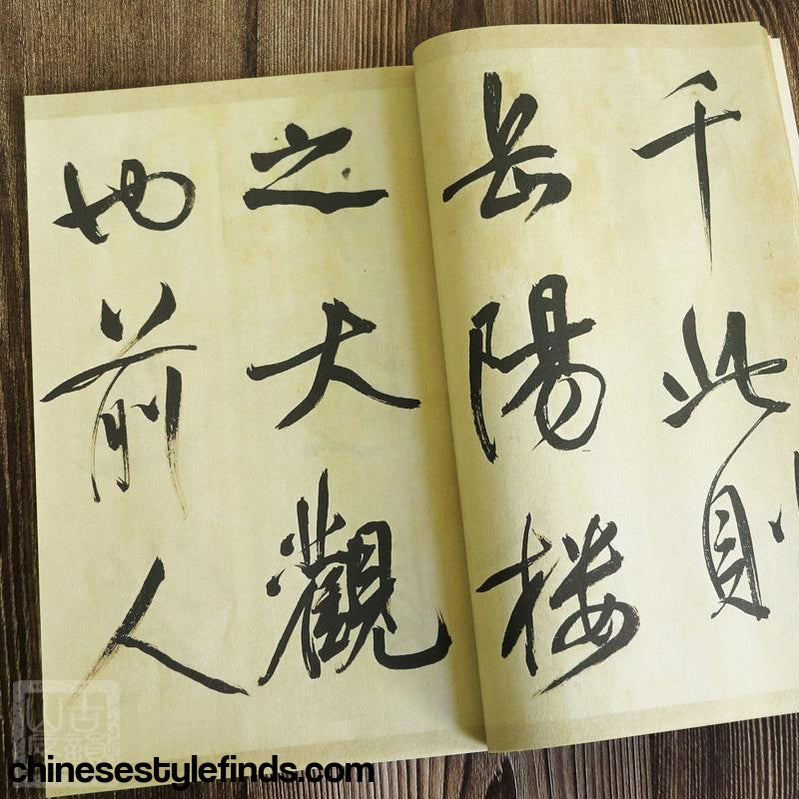 千此則
岳陽楼
之大觀
也前人
chinesestylefinds.com